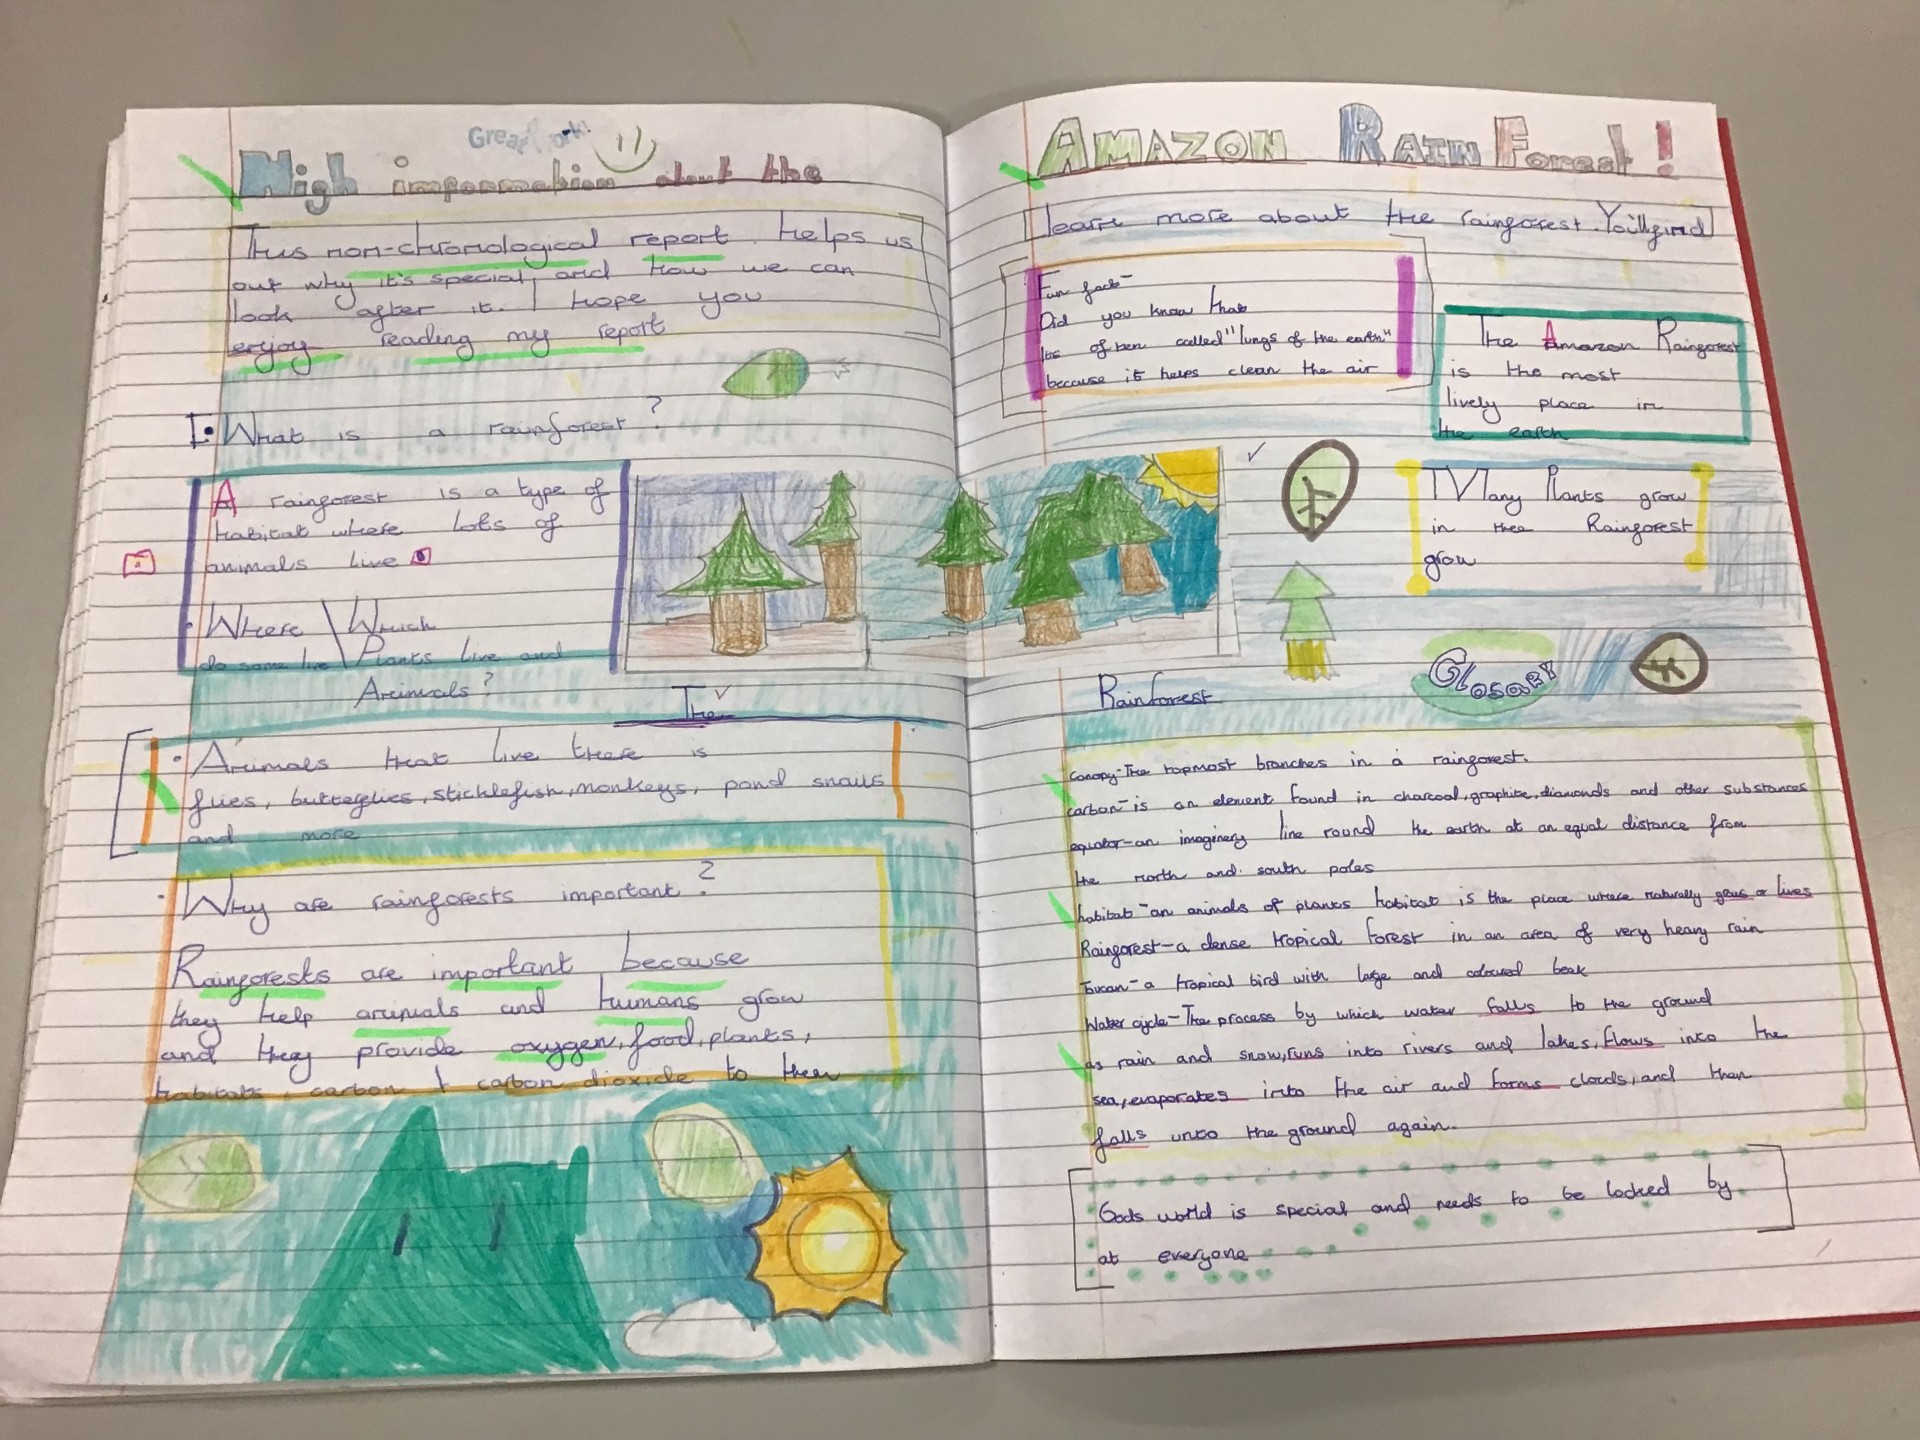 Great work!
High information about the
AMAZON RAIN Forest!
This non-chronological report helps us
learn more about the rainforest. You'll find
out why it's special, and how we can
look after it. I hope you
enjoy reading my report
I. What is a rainforest?
A rainforest is a type of
habitat where lots of
animals live
Where \ Which
do some live \ Plants live and
Animals?
The Rainforest
Animals that live there is
flies, butterflies, sticklefish, monkeys, pond snails
and more
Why are rainforests important?
Rainforests are important because
they help animals and humans grow
and they provide oxygen, food, plants,
habitats, carbon + carbon dioxide to them
Fun fact-
Did you know that
Its often called "lungs of the earth"
because it helps clean the air
The Amazon Rainforest
is the most
lively place in
the earth
Many Plants grow
in thee Rainforest
grow
Glosary
canopy-The topmost branches in a rainforest.
carbon-is an element found in charcoal, graphite, diamonds and other substances
equator-an imaginery line round the earth at an equal distance from
the north and south poles
habitat-an animals of plants habitat is the place where naturally grus or lives
Rainforest-a dense tropical forest in an area of very heavy rain
toucan-a tropical bird with large and coloured beak
Water cycle-The process by which water falls to the ground
as rain and snow, runs into rivers and lakes, flows into the
sea, evaporates into the air and forms clouds, and then
falls unto the ground again.
Gods world is special and needs to be looked by
at everyone